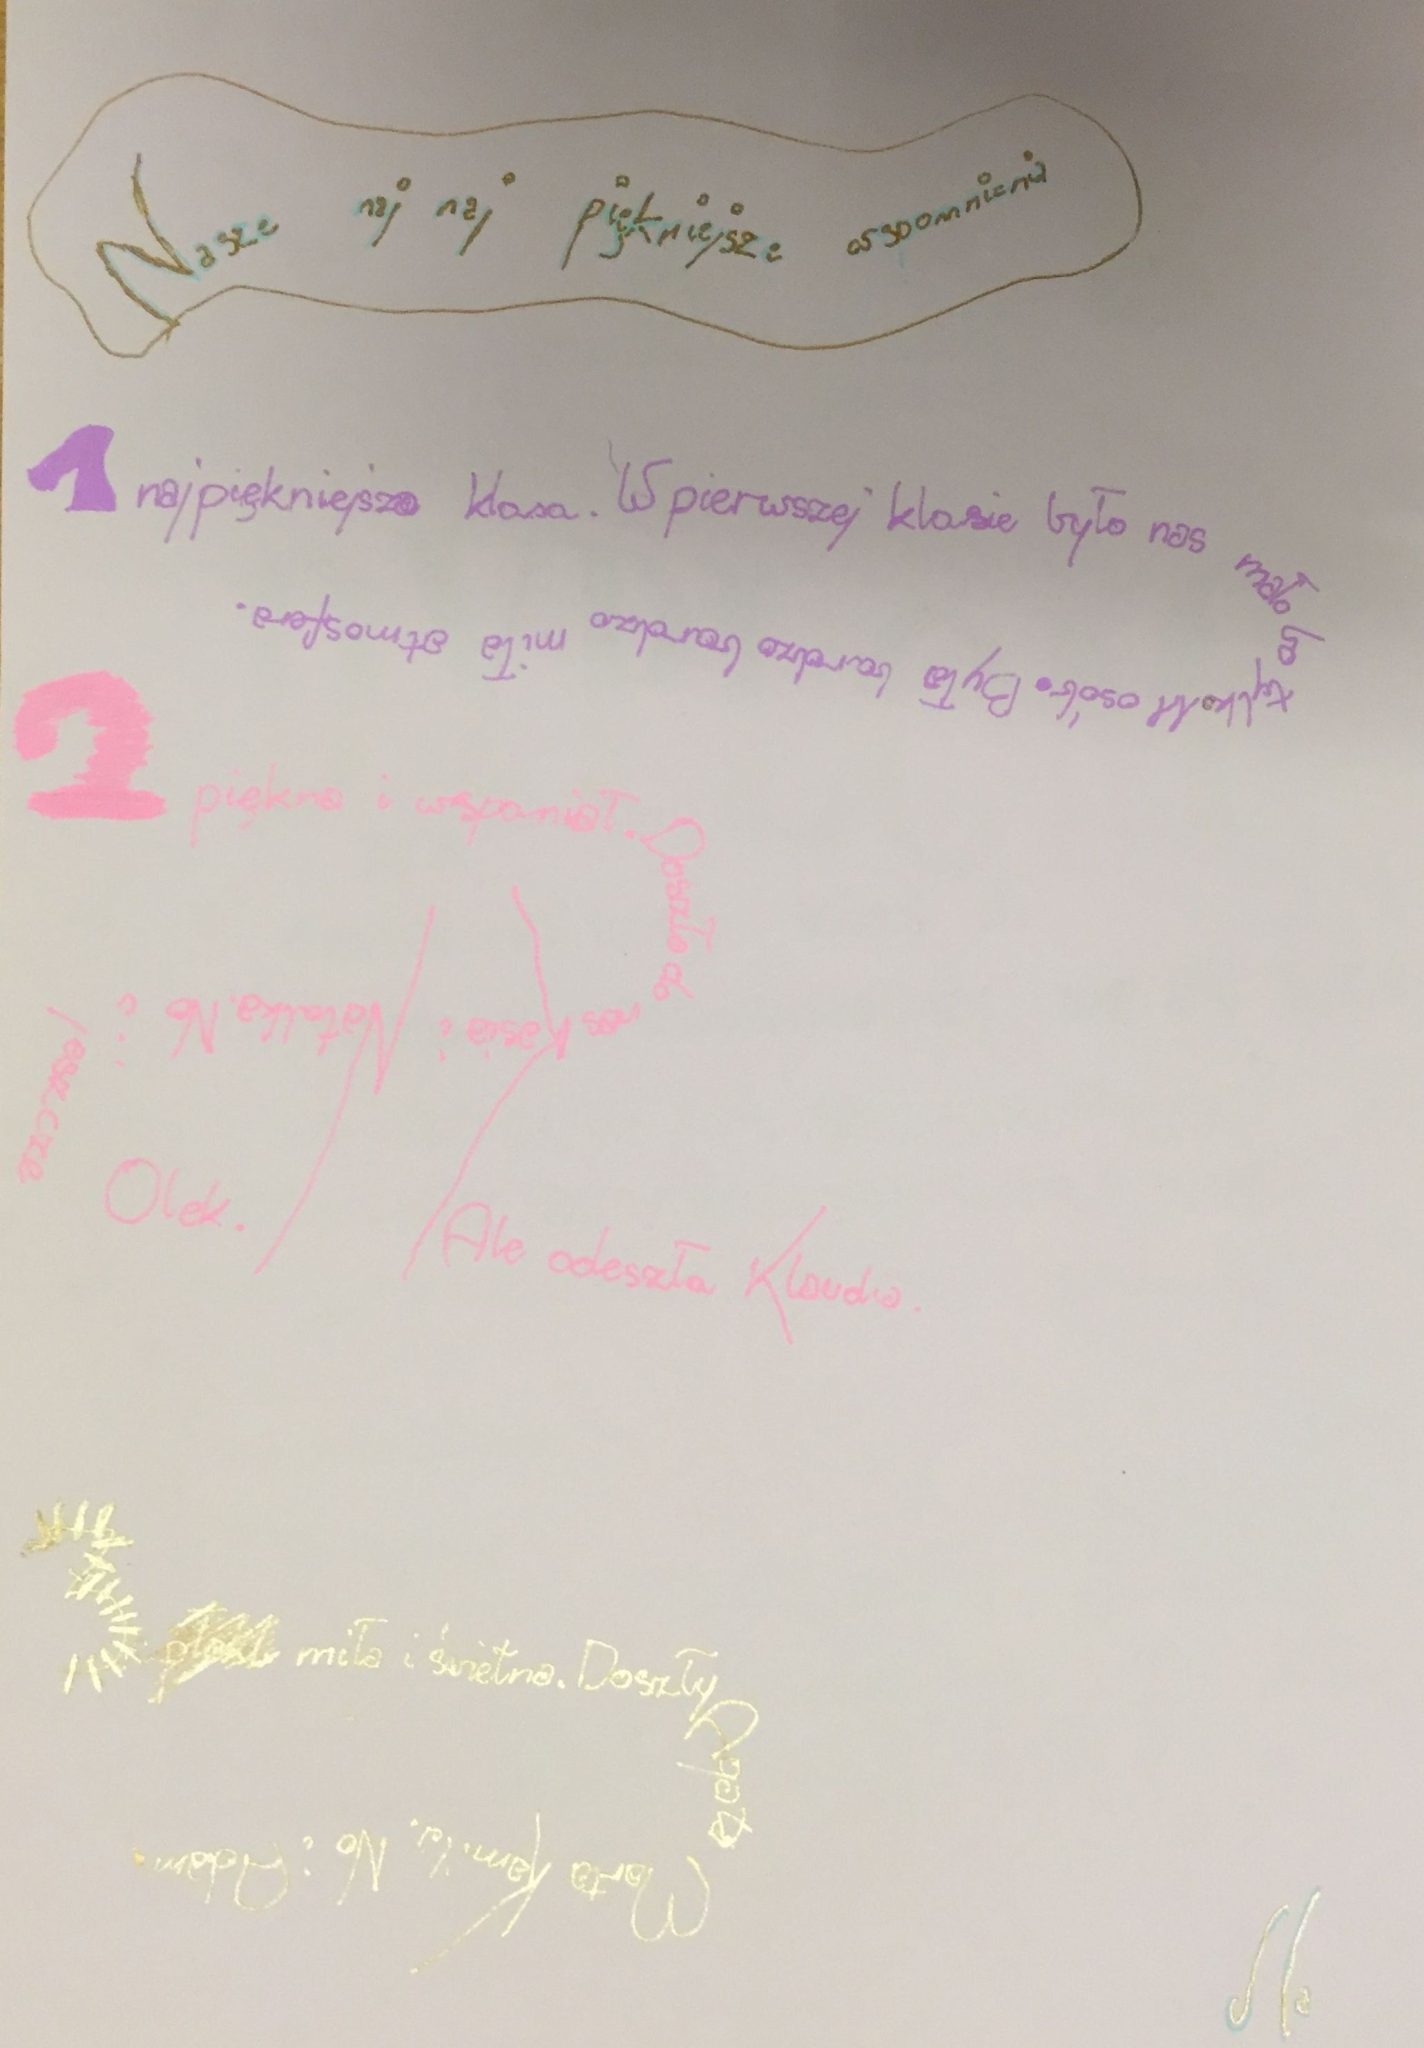 Nasze naj naj piękniejsze wspomnienia
1 najpiękniejsza klasa. W pierwszej klasie było nas mało bo
tylko 11 osób. Była bardzo bardzo miła atmosfera.
2 piękna i wspaniał. Doszło do
nas Kasia i Natalka. No i
jeszcze
Olek. Ale odeszła Klaudia.
3 miła i świetna. Doszły Agata
Marta Kamila. No i Adam.